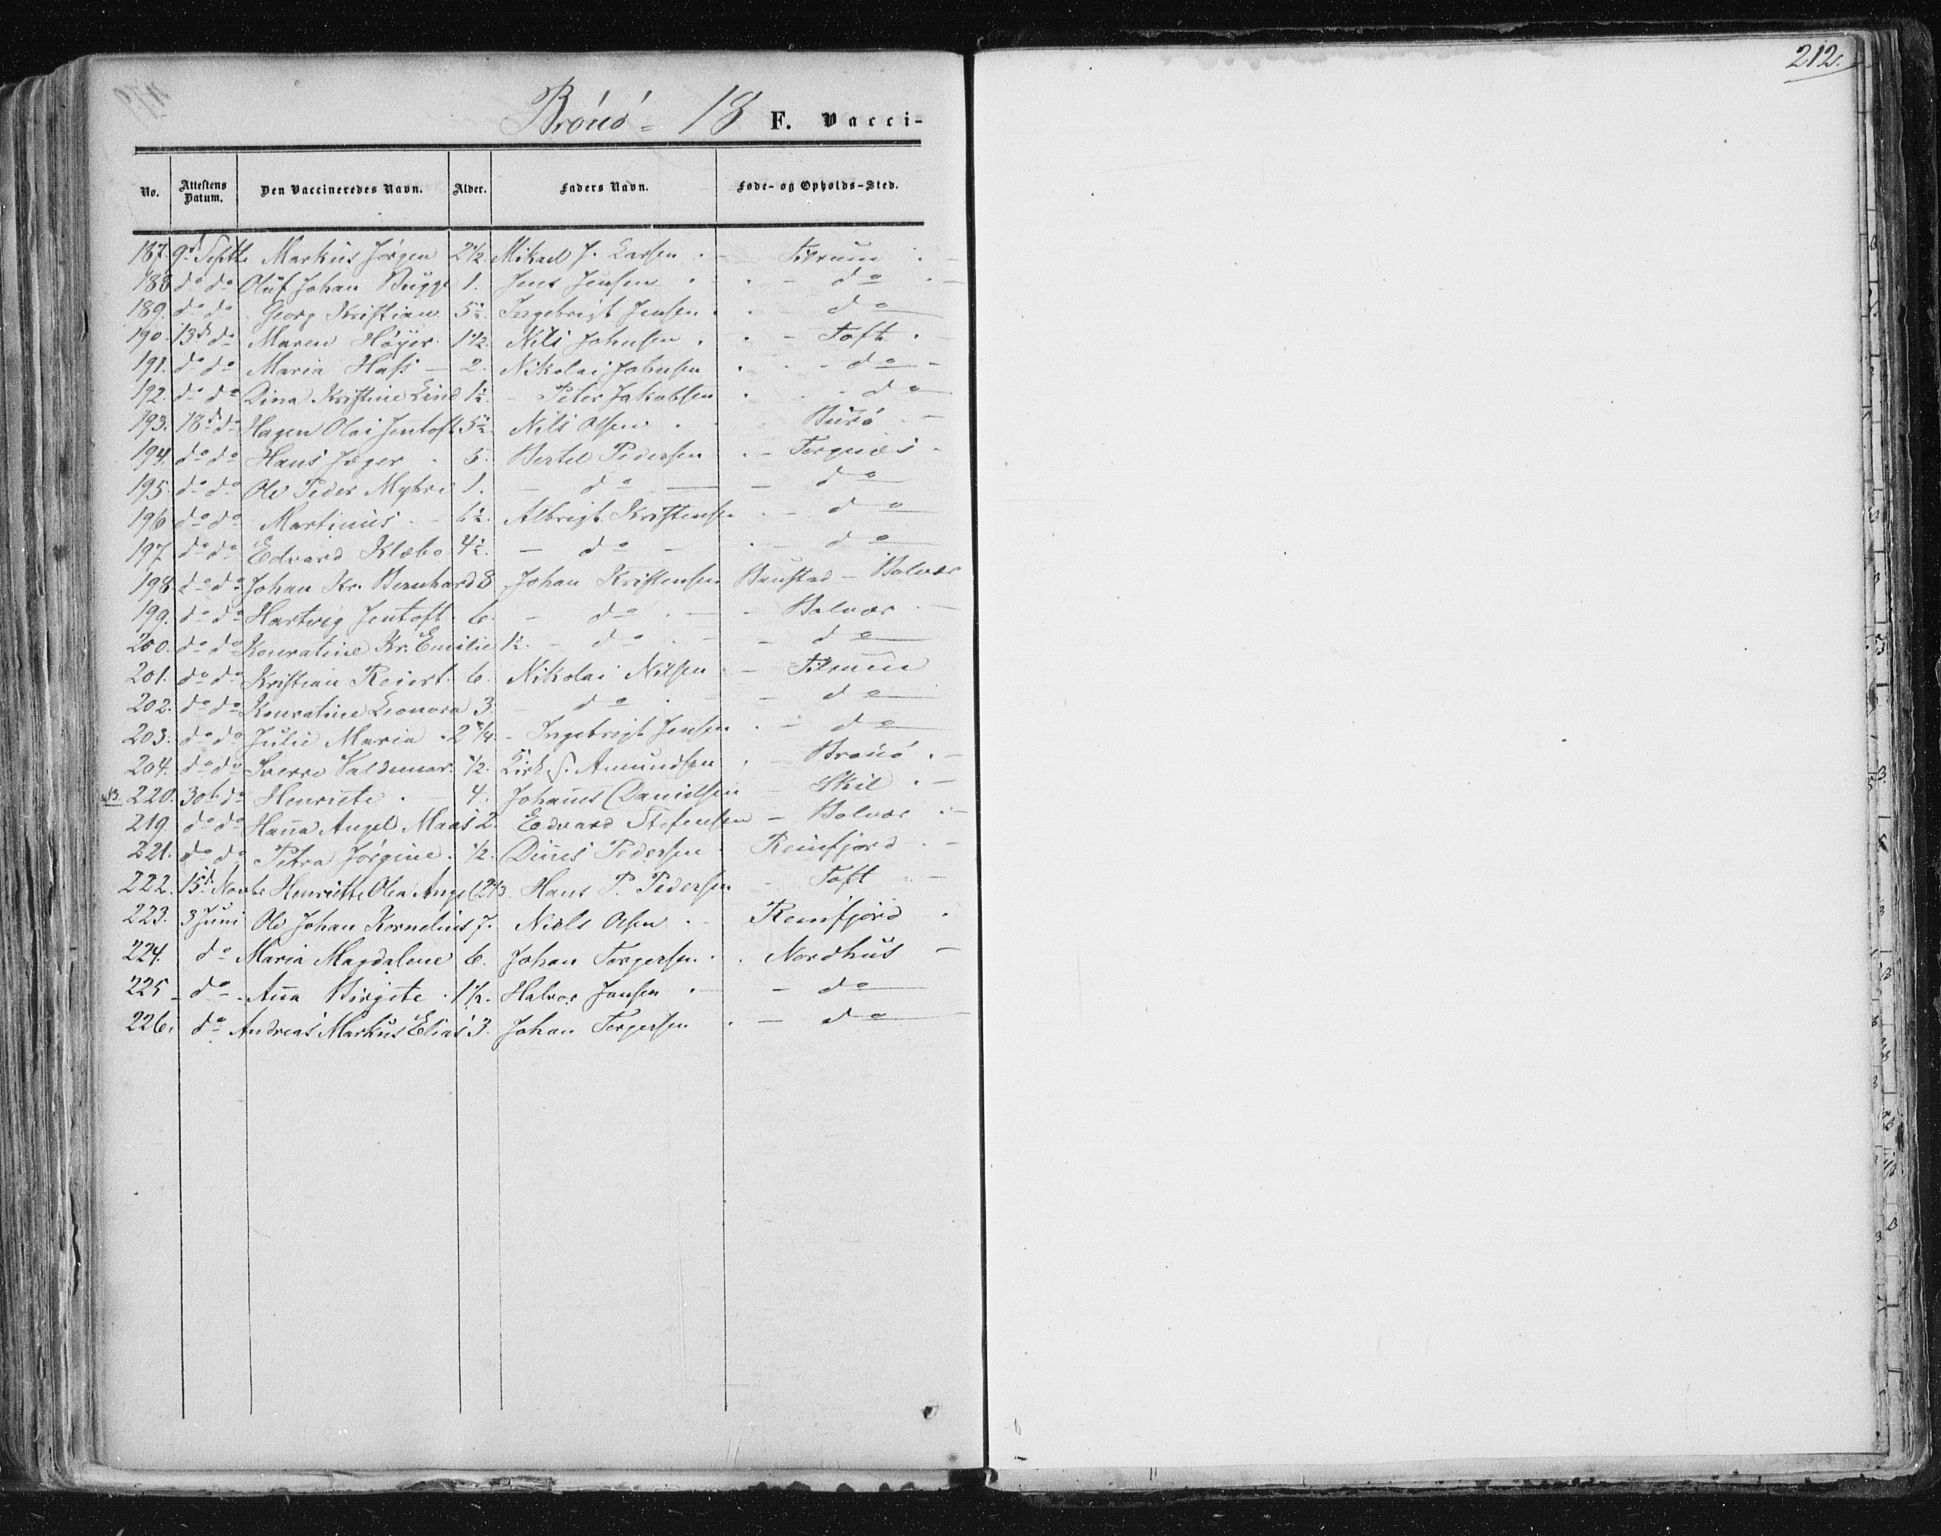 212.
Brönö - 18 F. Vacci-
No. Attestens Datum. Den Vaccineredes Navn. Alder. Faders Navn. Føde- og Opholds-Sted.
187. 9d Septb Markus Jørgen 2½ Mikael J. Larsen - Tilrum
188 do do Oluf Johan Bugge 1. Jens Jensen - do
189. do do Georg Kristian 5½. Ingebrigt Jensen. do
190. 13d do Maren Høyer. 1½ Nils Johnsen. - Toft. -
191. do do Maria Hass - 2. Nikolai Johnsen - do -
192. do do Dina Kristine Lind 1½. - Peter Jakobsen - do
193. 18d do Hagen Olai Jentoft 5½. Nils Olsen. Burö -
194. do do Hans Jæger. 5. Bertel Pedersen - Torgnæs -
195. do do Ole Peder Myhre 1. - do - - do
196 do do Martinus. - 6½. Albrigt Kristensen - do
197. do do Edvard Klæbo 4½. - do - - do
198. do do Johan Kr. Bernhard 8 Johan Kristensen Baustad - Bolvær
199. do do Hartvig Jentoft. 6. - do. - - Bolvær. -
200. do do Konratine Kr. Emilie 1½. - do. - - do
201. do do Kristian Reiert. 6. Nikolai Nilsen. - Tilrum
202. do do Konratine Leonora 3. - do. - - do
203. do do Julie Maria. 2¼ - Ingebrigt Jensen. - do
204. do do Sverre Valdemar. ½. Kirks. Amundsen. - Brönö. -
220. 30d do Henriete. - 4. Johannes Danielsen - Skil. -
219. do do Hanna Angel Maas 2. Edvard Stefensen - Bolvær. -
221. do do Petra Jørgine. ½. Dines Pedersen. Reinfjord. -
222. 15d Novbr Henriette Olea Angel 2⅓. Hans P. Pedersen - Toft -
223. 3 Juni Ole Johan Kornelius 7. Niels Olsen. - Reinfjord.
224. do Maria Magdalene 6. Johan Torgersen. Nordhus -
225 - do - Anna Birgite. 1½. Halvor Jansen. - - do
226. do Andreas Markus Elias 3. Johan Torgersen. - do